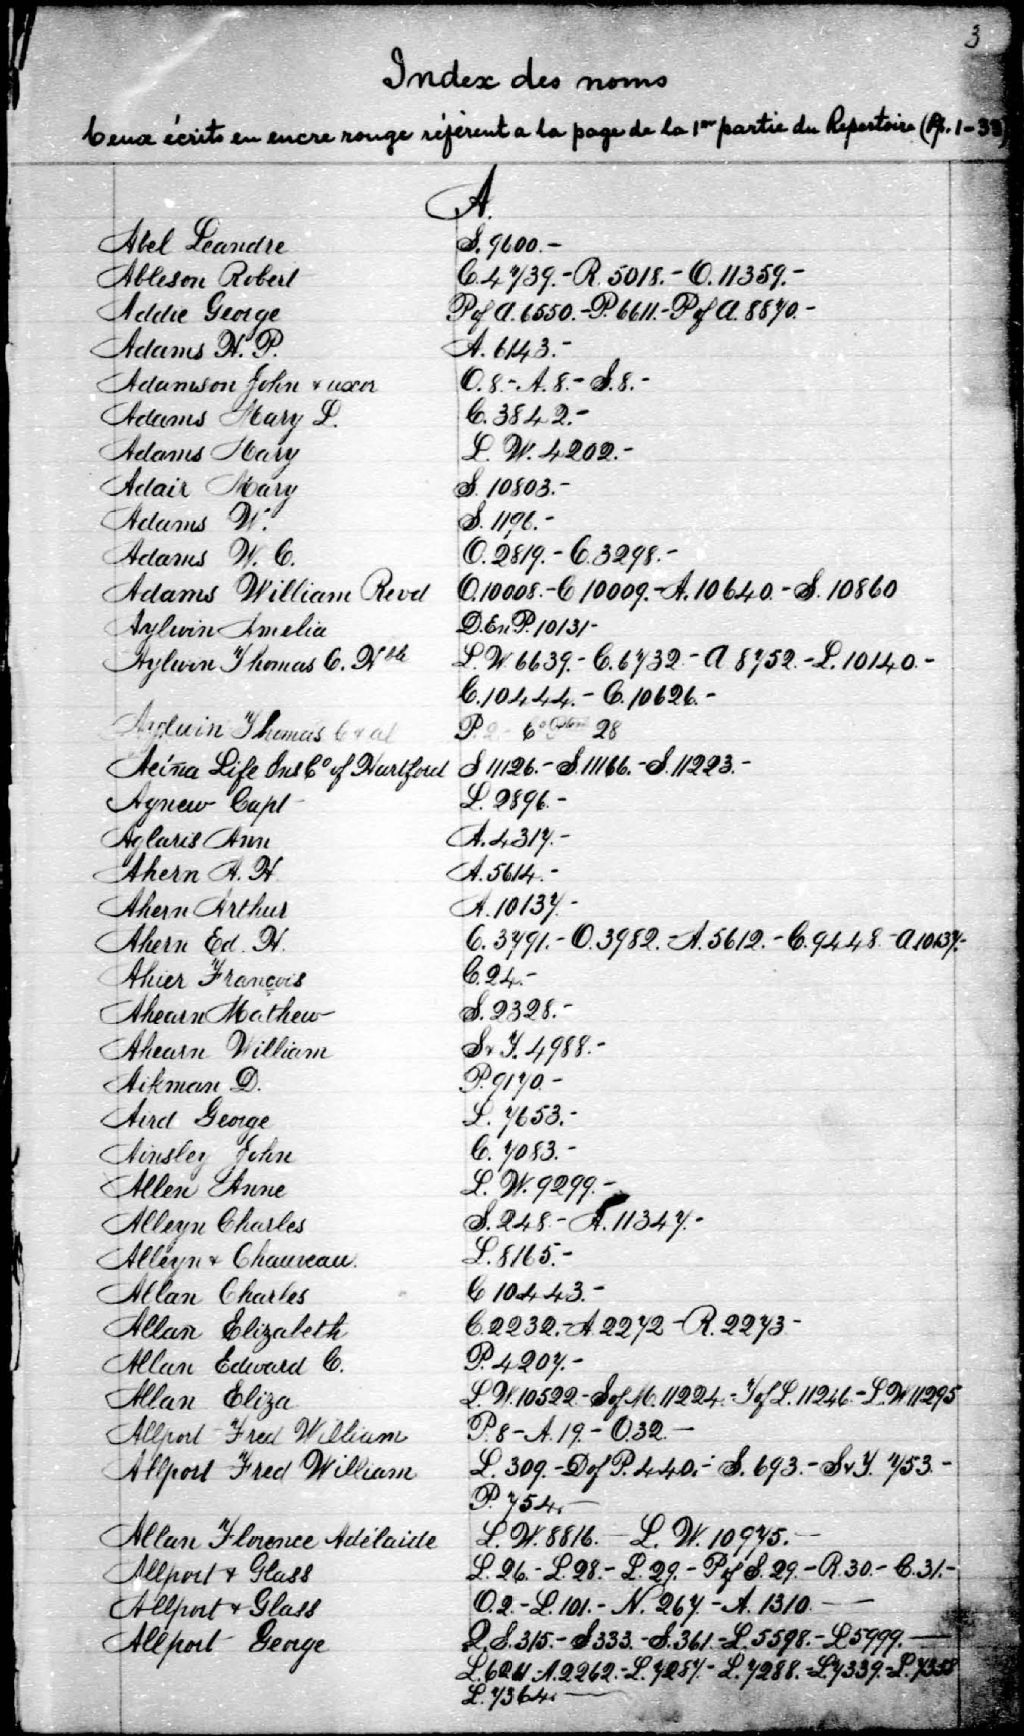 3
Index des noms
Ceux écrits en encre rouge réfèrent a la page de la 1ere partie du Repertoire (Pp. 1-33)
A.
Abel Leandre S. 9600.-
Ableson Robert C. 4739.- R. 5018.- O. 11359.-
Addie George P of A. 6550.- P. 6611.- P of A. 8870.-
Adams H. P. A. 6143.-
Adamson John & uxor O. 8.- A. 8.- S. 8.-
Adams Mary L. C. 3842.-
Adams Mary L. W. 4202.-
Adair Mary S. 10803.-
Adams W. S. 1196.-
Adams W. C. O. 2819.- C. 3298.-
Adams William Revd O. 10008.- C 10009.- A. 10640.- S. 10860
Aylwin Amelia D. En P. 10131-
Aylwin Thomas C. Nth L. W. 6639.- C. 6732.- A 8752.- L. 10140.-
C. 10444.- C. 10626.-
Aylwin Thomas C & al P. 2- 28
Aetna Life Ins Co of Hartford S 11126.- S. 11166.- S. 11223.-
Agnew Capt L. 2896.-
Aglaris Ann A. 4317.-
Ahern A. H. A. 5614.-
Ahern Arthur A. 10137.-
Ahern Ed. H. C. 3791.- O. 3982.- A. 5612.- C. 9448.- A 10137.-
Ahier François C. 24.-
Ahearn Mathew S. 2328.-
Ahearn William S & T. 4988.-
Aikman D. P. 9170.-
Aird George L. 7653.-
Ainsley John C. 7083.-
Allen Anne L. W. 9299.-
Alleyn Charles S. 248.- A. 11347.-
Alleyn & Chauveau. L. 8165.-
Allan Charles C 10443.-
Allan Elizabeth C. 2232.- A. 2272- R. 2273-
Allan Edward C. P. 4207.-
Allan Eliza L. W. 10522- S of M. 11224.- T of L. 11246.- L. W 11295
Allport Fred William P. 8- A. 19.- O. 32.-
Allport Fred William L. 309.- D of P. 440.- S. 693.- S & T. 753.-
P. 754.-
Allan Florence Adélaide L. W. 8816.- L. W. 10975.-
Allport & Glass L. 26.- L. 28.- L. 29.- P of S. 29.- R. 30.- C. 31.-
Allport & Glass O. 2.- L. 101.- N. 267.- A. 1310.-
Allport George Q. S. 315.- S 333.- S. 361.- L. 5598.- L 5999.-
L. 6261 A. 2262.- L. 7287.- L. 7288.- L 7339.- L. 7358
L. 7364.-